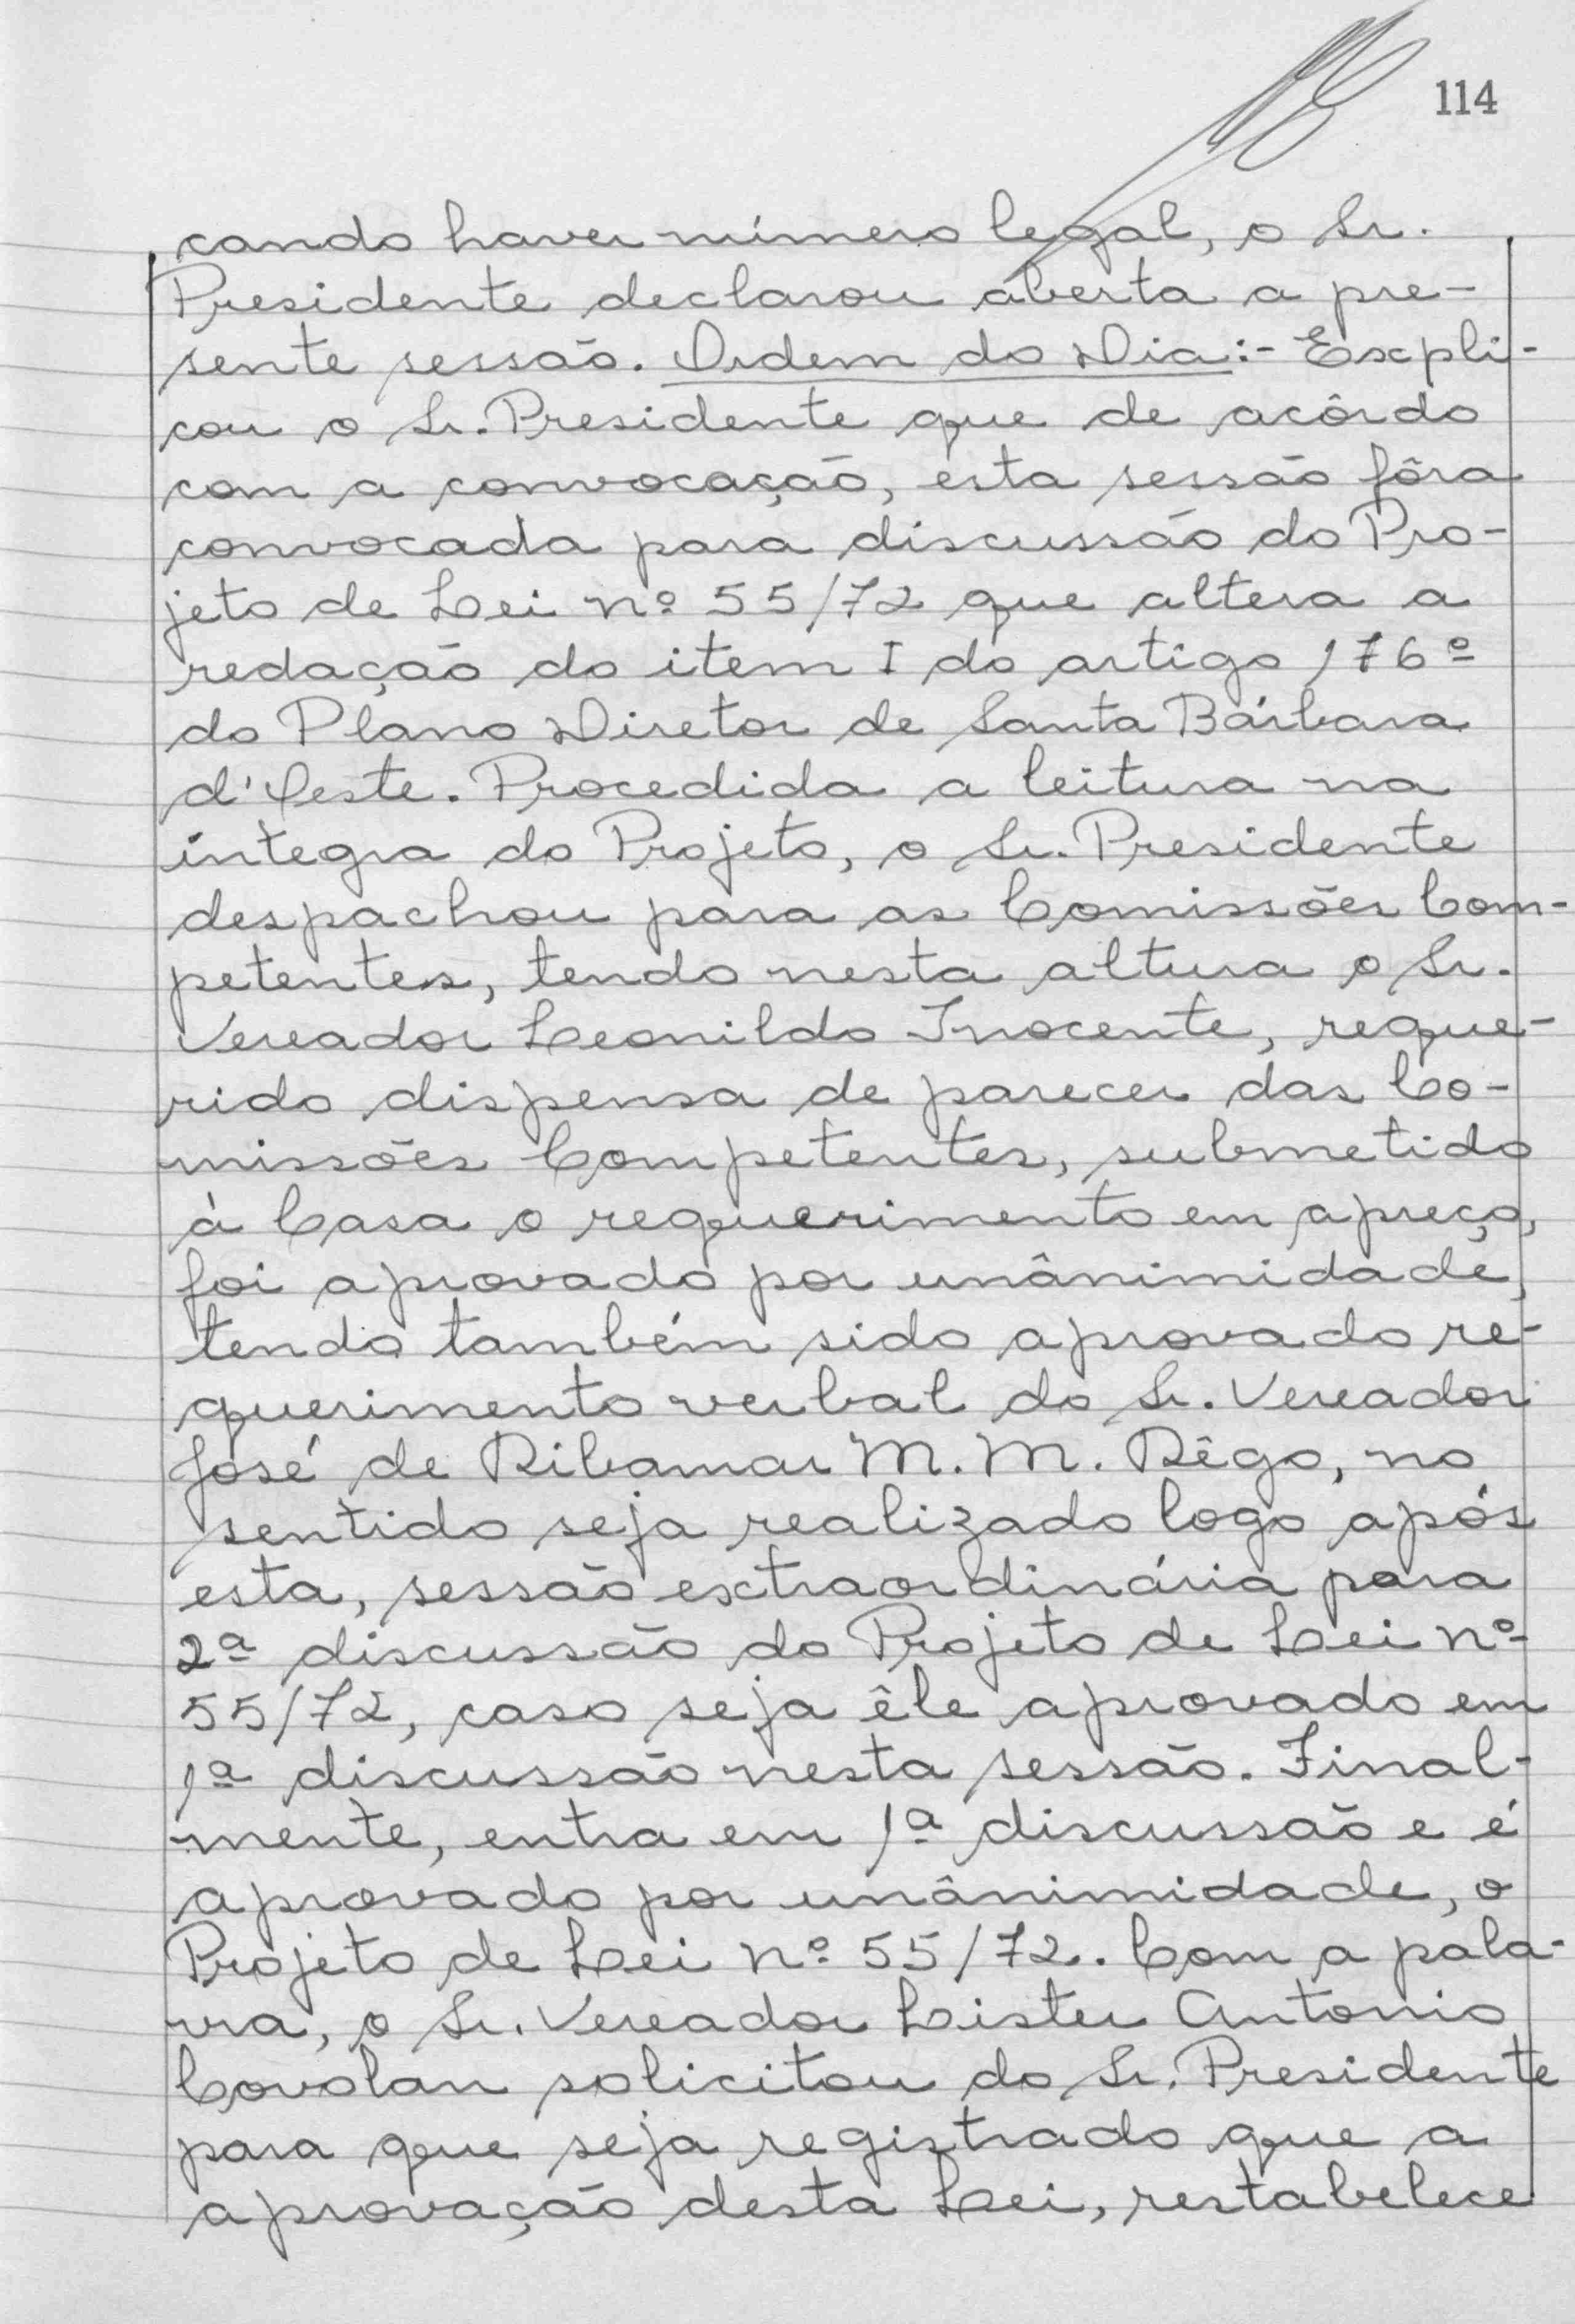 114
cando haver número legal, o Sr.
Presidente declarou aberta a pre-
sente sessão. Ordem do Dia:- Expli-
cou o Sr. Presidente que de acôrdo
com a convocação, esta sessão fôra
convocada para discussão do Pro-
jeto de Lei nº 55/72 que altera a
redação do item I do artigo 176º
do Plano Diretor de Santa Bárbara
d'Oeste. Procedida a leitura na
íntegra do Projeto, o Sr. Presidente
despachou para as Comissões Com-
petentes, tendo nesta altura o Sr.
Vereador Leonildo Inocente, reque-
rido dispensa de parecer das Co-
missões Competentes, submetido
à Casa o requerimento em apreço,
foi aprovado por unânimidade,
tendo também sido aprovado re-
querimento verbal do Sr. Vereador
José de Ribamar M. M. Rêgo, no
sentido seja realizado logo após
esta, sessão extraordinária para
2ª discussão do Projeto de Lei nº
55/72, caso seja êle aprovado em
1ª discussão nesta sessão. Final-
mente, entra em 1ª discussão e é
aprovado por unânimidade, o
Projeto de Lei nº 55/72. Com a pala-
vra, o Sr. Vereador Lister Antonio
Covolan solicitou do Sr. Presidente
para que seja registrado que a
aprovação desta Lei, restabelece